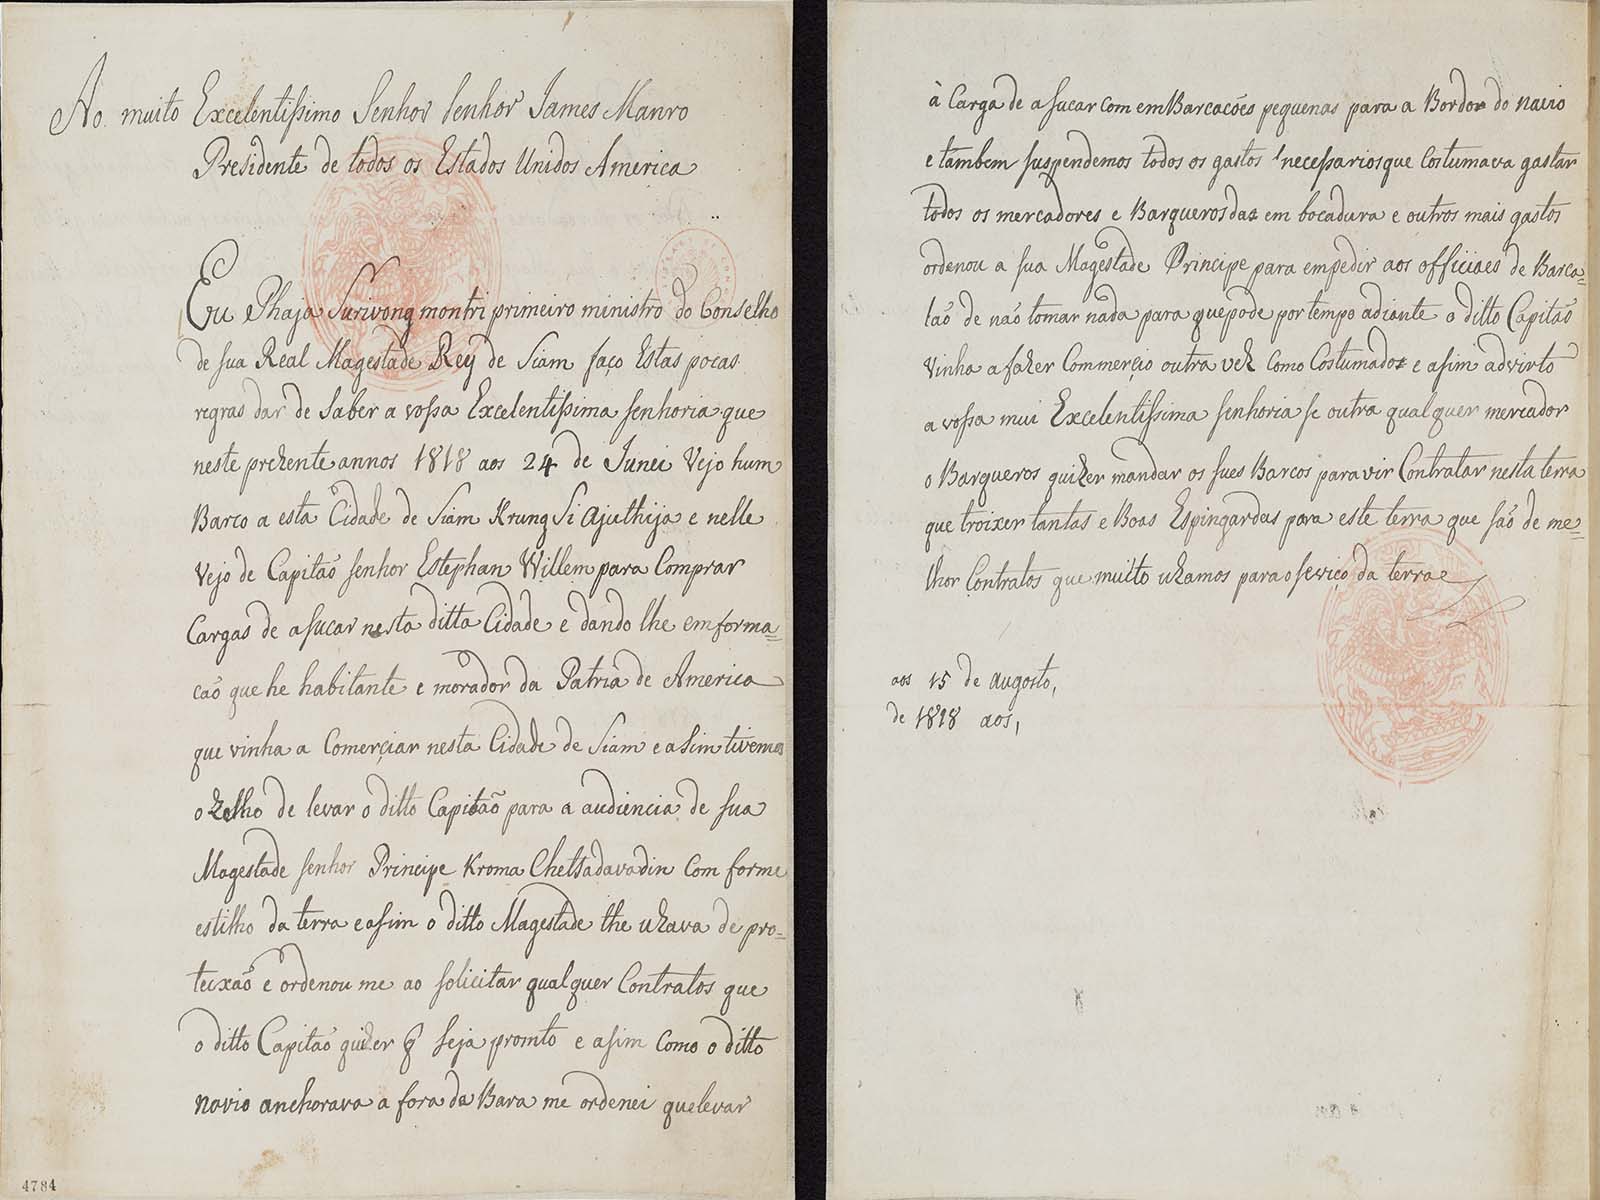 Ao muito Excelentissimo Senhor senhor James Manro
Presidente de todos os Estados Unidos America
Eu Phaja Surivong montri primeiro ministro do Conselho
de sua Real Magestade Rey de Siam faço Estas pocas
regras dar de Saber a vossa Excelentissima senhoria que
neste prezente annos 1818 aos 24 de Junei Vejo hum
Barco a esta Cidade de Siam Krung Si Ajuthija e nelle
Vejo de Capitaõ senhor Estephan Willem para Comprar
Cargas de asucar nesta ditta Cidade e dando lhe emforma=
caõ que he habitante e morador da Patria de America
que vinha a Comerçiar nesta Cidade de Siam e asim tivemos
o zelho de levar o ditto Capitaõ para a audiencia de sua
Magestade senhor Principe Kroma Chetsadavadin Com forme
estilho da terra e asim o ditto Magestade lhe uzava de pro=
teixaõ e ordenou me ao solicitar qualquer Contratos que
o ditto Capitaõ quizer q seja promto e asim Como o ditto
navio anchorava a fora da Bara me ordenei que levar
à Carga de asucar com emBarcacões pequenas para a Bordo do navio
e tambem suspendemos todos os gastos necessarios que Costumava gastar
todos os mercadores e Barqueros das em bocadura e outros mais gastos
ordenou a sua Magestade Principe para empedir aos officiaes de Barca=
laõ de naõ tomar nada para que pode por tempo adiante o ditto Capitaõ
Vinha a fazer Commerçio outra vez Como Costumado e asim advirto
a vossa mui Excelentissima senhoria se outra qualquer mercador
o Barqueros quizer mandar os sues Barcos para vir Contratar nesta terra
que troixer tantas e Boas Espingardas para este terra que saõ de me=
lhor Contratos que muito uzamos para o seviço da terra
aos 15 de augosto,
de 1818 aos,
4784